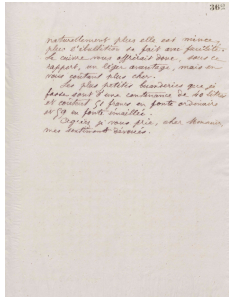 362
naturellement plus elle est mince,
plus l'ébullition se fait avec facilité.
Le cuivre vous offrirait donc, sous ce
rapport, un léger avantage, mais en
vous coûtant plus cher.
Les plus petites buanderies que je
fasse sont d'une contenance de 40 litres
et coûtent 51 francs en fonte ordinaire
et 59 en fonte émaillée.
Agréez je vous prie, cher Monsieur,
mes sentiments dévoués.